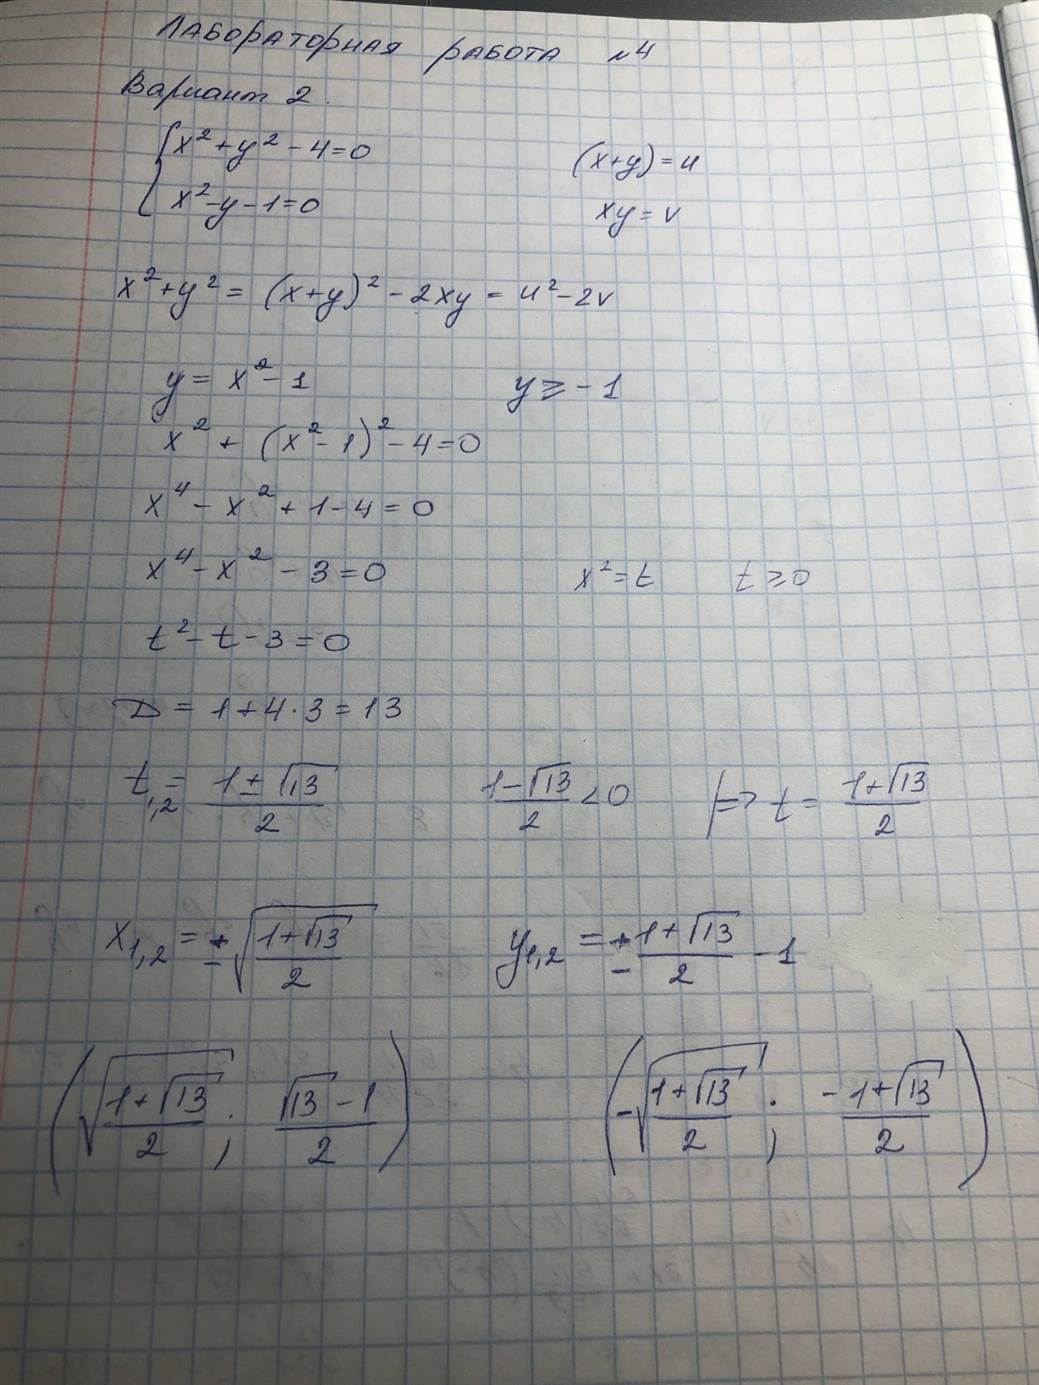 Лабораторная работа №4
Вариант 2.
{ x² + y² - 4 = 0        (x+y) = u
{ x² - y - 1 = 0        xy = v
x² + y² = (x+y)² - 2xy = u² - 2v
y = x² - 1        y ≥ -1
x² + (x² - 1)² - 4 = 0
x⁴ - x² + 1 - 4 = 0
x⁴ - x² - 3 = 0        x² = t        t ≥ 0
t² - t - 3 = 0
D = 1 + 4·3 = 13
t₁,₂ = (1 ± √13)/2        (1 - √13)/2 < 0        |=> t = (1 + √13)/2
x₁,₂ = ± √((1 + √13)/2)        y₁,₂ = ± (1 + √13)/2 - 1
(√((1 + √13)/2) ; (√13 - 1)/2)        (-√((1 + √13)/2) ; (-1 + √13)/2)